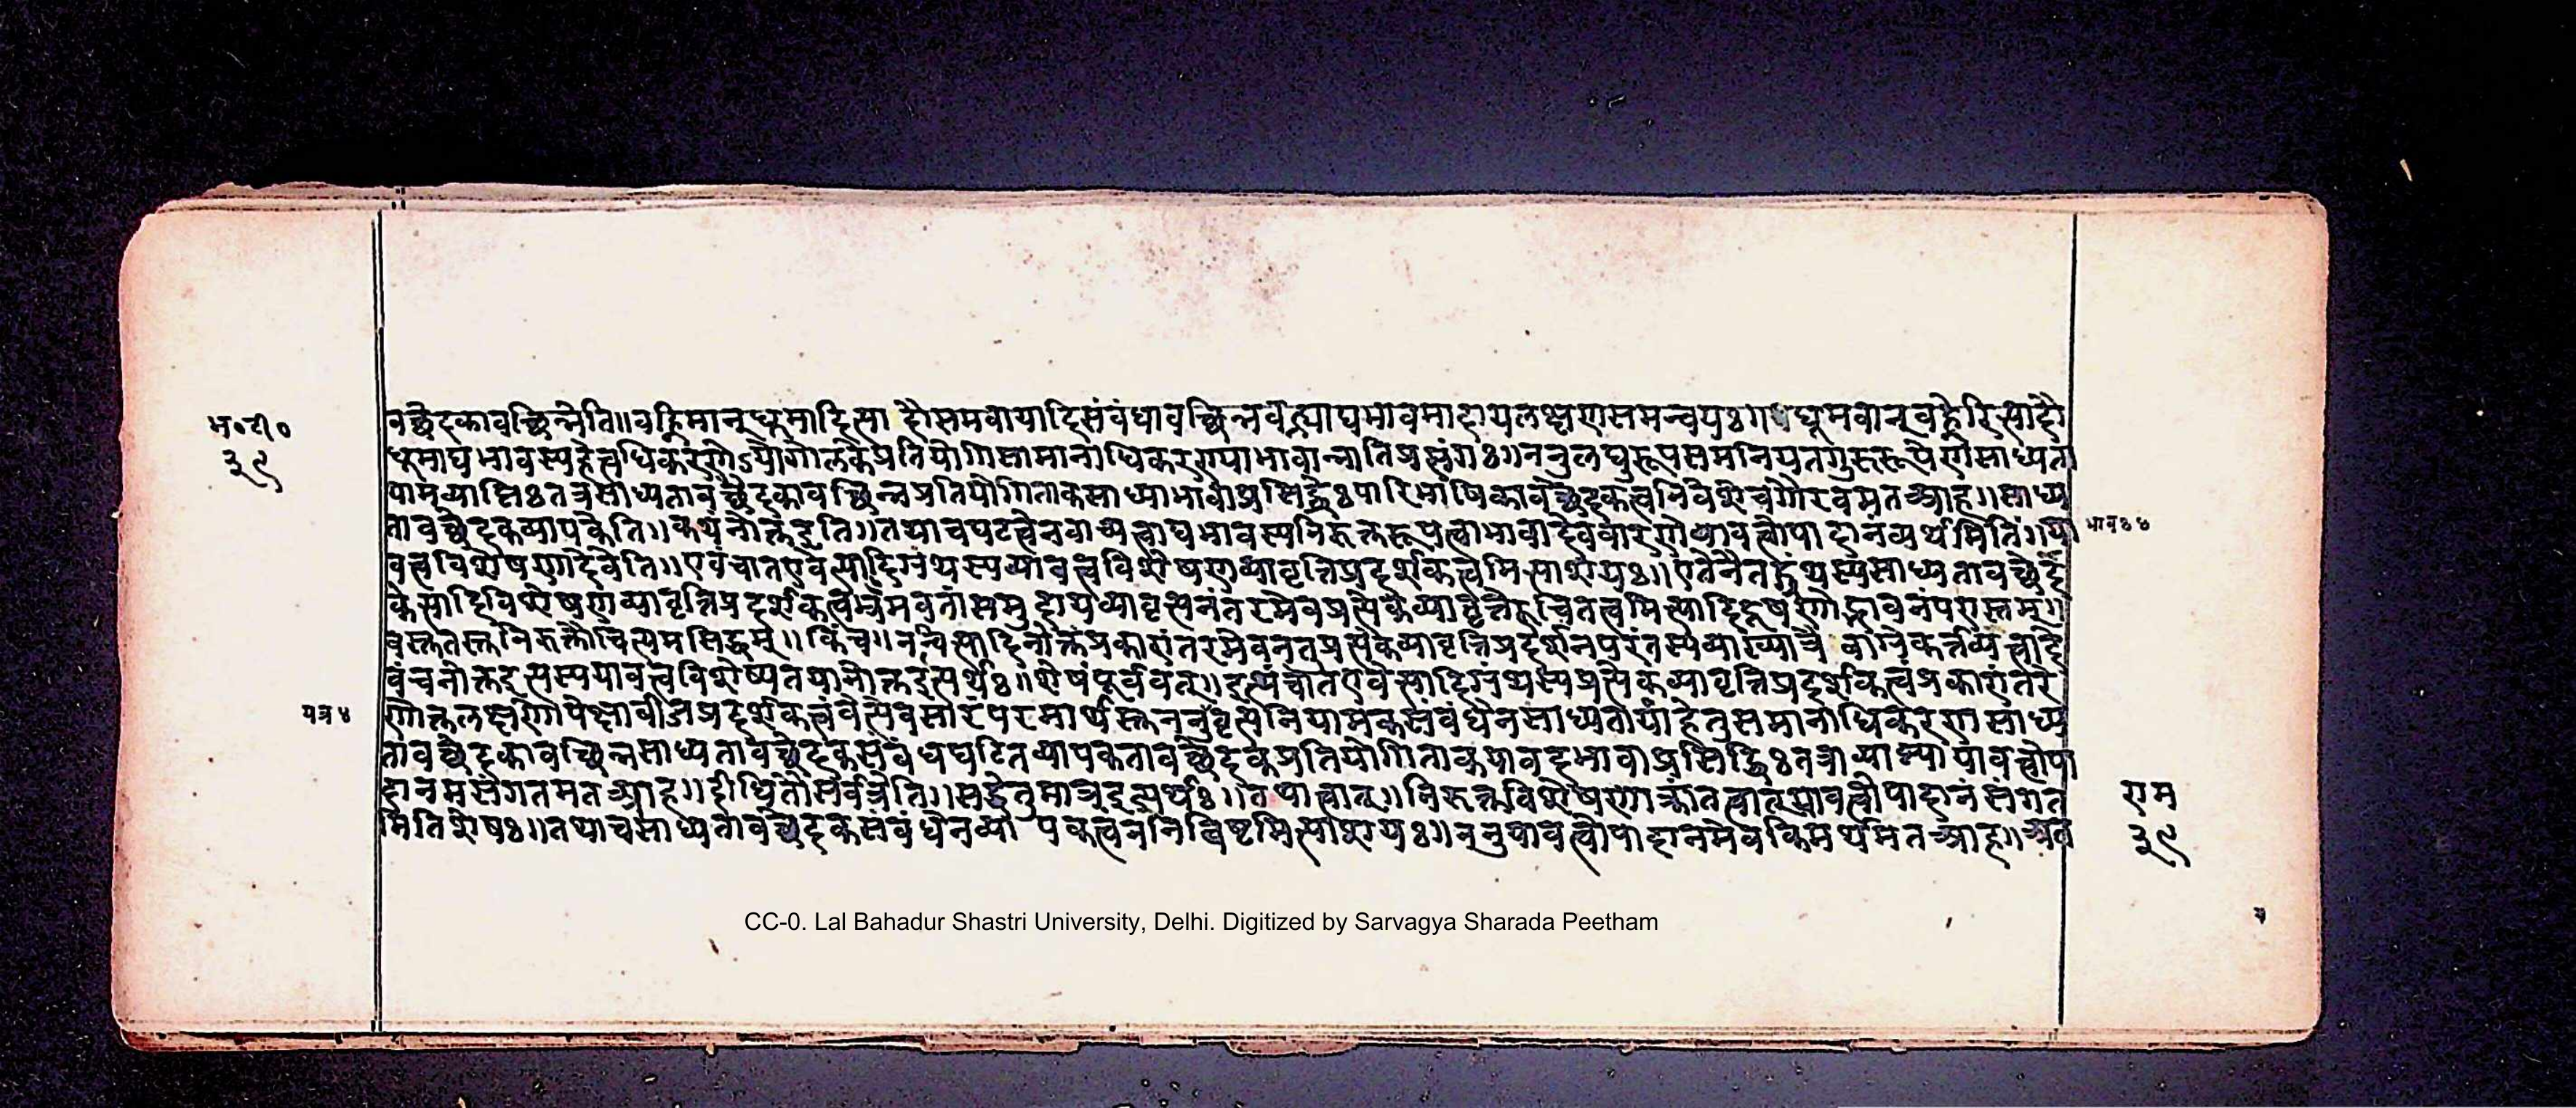 भ॰टी॰
३९
वच्छेदकावच्छिन्नेति॥वह्निमान्धूमादित्यादौसमवायादिसंबंधावच्छिन्नवह्न्याद्यभावमादायलक्षणसमन्वयः॥धूमवान्वह्नेरित्यादौ
धूमाद्यभावस्यहेत्वधिकरणेऽयोगोलकेप्रतियोगिसामानाधिकरण्याभावान्नातिप्रसंगः॥ननुलघुरूपसमनियतगुरुरूपेणसाध्यता
यामव्याप्तिःतत्रसाध्यतावच्छेदकावच्छिन्नप्रतियोगिताकसाध्याभावाप्रसिद्धेःपारिभाषिकावच्छेदकत्वनिवेशेचगौरवमतआह॥साध्य
तावच्छेदकव्यापकेति॥कथंनोक्तइति॥तथाचघटत्वेनवाच्यत्वाद्यभावस्यनिरुक्तरूपत्वाभावादेववारणेयावत्त्वोपादानंव्यर्थमितिं॥या
वत्त्वविशेषणादेवेति॥एवंचातएवेत्यादिग्रंथस्ययावत्त्वविशेषणव्यावृत्तिप्रदर्शकत्वमित्याशयः॥एतेनैतद्ग्रंथस्यसाध्यतावच्छेद
केत्यादिविशेषणव्यावृत्तिप्रदर्शकत्वभ्रमवतांसमुदायव्यावृत्त्यनंतरमेवप्रत्येकव्यावृत्तेरुचितत्वमित्यादिदूषणोद्भावनंपरास्तम्॥
वस्तुतस्तुनिरुक्तौचित्यमसिद्धम्॥किंच॥नन्वित्यादिनोक्तंप्रकारांतरमेवनतप्रत्येकव्यावृत्तिप्रदर्शनपरंतस्यव्याख्याने
वंचनोक्तइत्यस्ययावत्त्वविशेष्यतयानोक्तइत्यर्थः॥शेषंपूर्ववत्॥इत्थंचातएवेत्यादिग्रंथस्यप्रत्येकव्यावृत्तिप्रदर्शकत्वंप्रकारांतरे
णोक्तलक्षणोपेक्षाबीजप्रदर्शकत्वंवेत्येवसारंपरमार्थस्तुननुवृत्त्यनियामकसंबंधेनसाध्यतायांहेतुसमानाधिकरणसाध्य
तावच्छेदकावच्छिन्नसाध्यतावच्छेदकसंबंधघटितव्यापकतावच्छेदकप्रतियोगिताकयावदभावाप्रसिद्धिःतत्राव्याप्त्यायावत्त्वोपा
दानमसंगतमतआह॥दीधितौसर्वत्रेति॥सद्धेतुमात्रइत्यर्थः॥तथात्वात्॥निरुक्तविशेषणाक्रांतत्वात्यावत्त्वोपादानंसंगत
मितिशेषः॥तथाचसाध्यतावच्छेदकसंबंधेनव्यापकत्वंननिविष्टमित्याशयः॥ननुयावत्त्वोपादानमेवकिमर्थमितआह॥अत
राम
३९
CC-0. Lal Bahadur Shastri University, Delhi. Digitized by Sarvagya Sharada Peetham